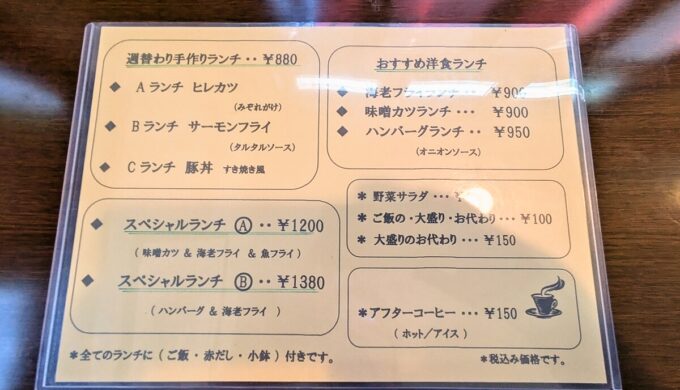 週替わり手作りランチ‥￥880
◆ Aランチ ヒレカツ
(みぞれがけ)
◆ Bランチ サーモンフライ
(タルタルソース)
◆ Cランチ 豚丼 すき焼き風
おすすめ洋食ランチ
◆ 海老フライランチ‥ ￥900
◆ 味噌カツランチ‥ ￥900
◆ ハンバーグランチ‥ ￥950
(オニオンソース)
◆ スペシャルランチ Ⓐ‥￥1200
( 味噌カツ & 海老フライ & 魚フライ )
◆ スペシャルランチ Ⓑ‥￥1380
( ハンバーグ & 海老フライ )
＊野菜サラダ…￥
＊ご飯の・大盛り・お代わり…￥100
＊大盛りのお代わり…￥150
＊アフターコーヒー…￥150
( ホット／アイス )
＊全てのランチに ( ご飯・赤だし・小鉢 ) 付きです。
＊税込み価格です。